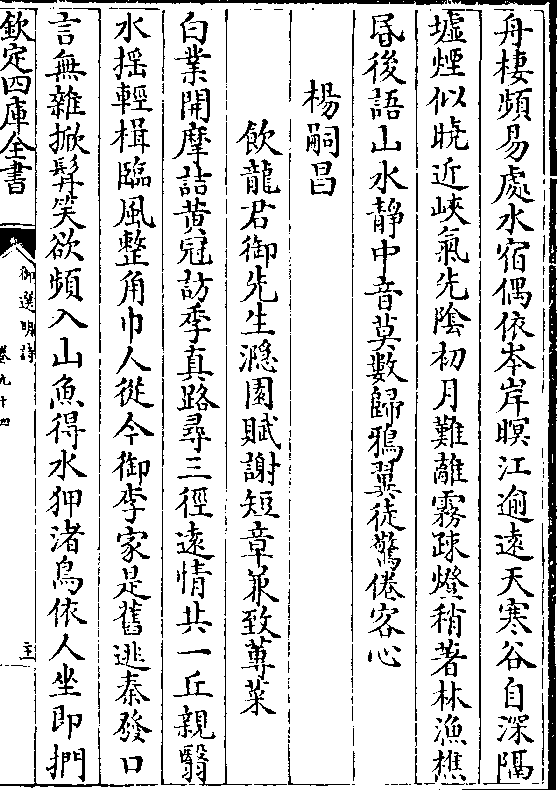 舟棲頻易處水宿偶依岑岸暝江逾遠天寒谷自深隔
墟煙似曉近峽氣先陰初月難離霧疎燈稍著林漁樵
昏後語山水靜中音莫數歸鴉翼徒驚倦客心
楊嗣昌
飲龍君御先生㶏園賦謝短章兼致蓴菜
白業開摩詰黃冠訪季真路尋三徑遠情共一丘親翳
水揺輕楫臨風整角巾人從今御李家是舊逃秦發口
言無雜掀髯笑欲頻入山魚得水狎渚鳥依人坐即捫
欽定四庫全書
御選明詩
卷九十四